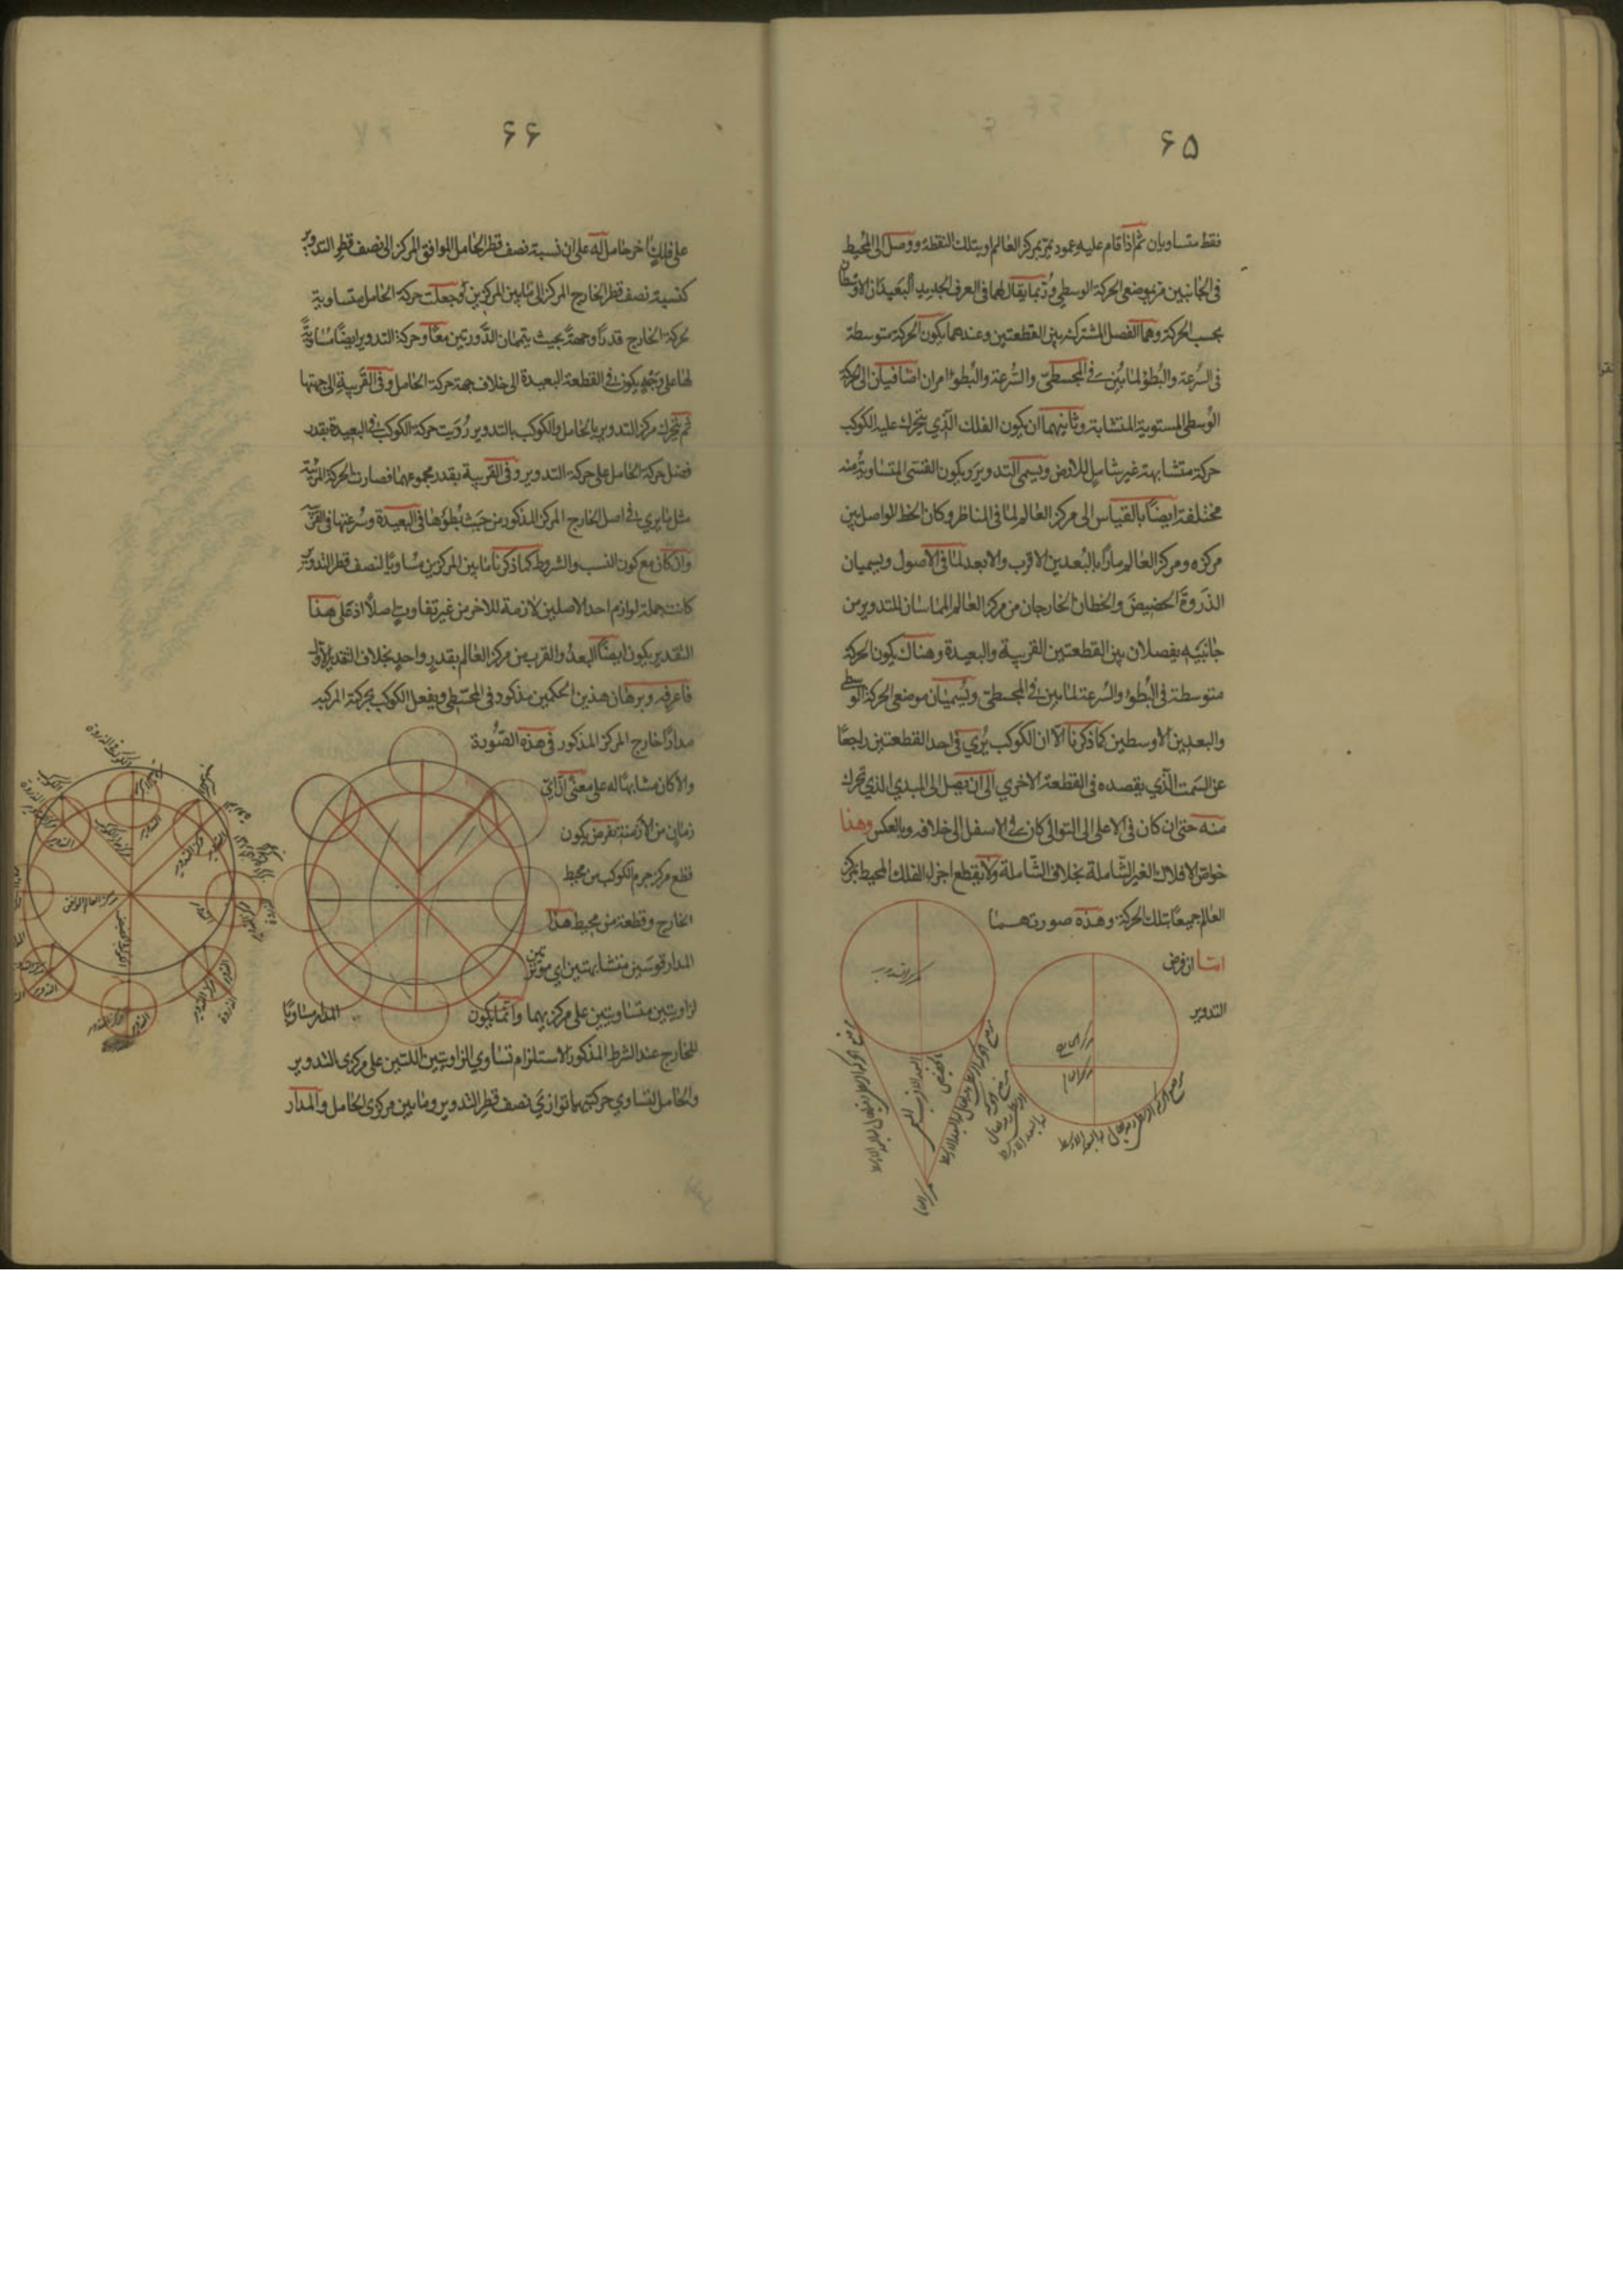 ۶۵
فقط متساويان ثم اذا قام عليه عمود يمر بمركز العالم او بتلك النقطة ووصل الى المحيط
فى الجانبين مر بموضعى الحركة الوسطى وربما يقال لهما فى العرف الجديد البعيدان الاوسطان
بحسب الحركة وهما الفصل المشترك بين القطعتين وعندهما يكون الحركة متوسطة
فى السرعة والبطؤ لما بين فى المجسطى والسرعة والبطؤ امران اضافيان الى الحركة
الوسطى المستوية المتشابهة وثانيهما ان يكون الفلك الذي يتحرك عليه الكوكب
حركة متشابهة غير شامل للارض ويسمى التدوير ويكون القسى المتساوية منه
مختلفة ايضا بالقياس الى مركز العالم لما فى المناظر وكان الخط الواصل بين
مركزه ومركز العالم مارا بالبعدين الاقرب والابعد لما فى الاصول ويسميان
الذروة الحضيض والخطان الخارجان من مركز العالم المماسان للتدوير من
جانبيه يفصلان بين القطعتين القريبة والبعيدة وهناك يكون الحركة
متوسطة فى البطؤ والسرعة لما بين فى المجسطى ويسميان موضعى الحركة الوسطى
والبعدين الاوسطين كما ذكرنا الا ان الكوكب يرى فى احد القطعتين راجعا
عن السمت الذي يقصده فى القطعة الاخرى الى ان يصل الى المبدى الذي تحرك
منه حتى ان كان فى الاعلى الى التوالى كان فى الاسفل الى خلافه وبالعكس وهذا
خواص الافلاك الغير الشاملة بخلاف الشاملة ولا يقطع اجزاء الفلك المحيط بمركز
العالم جميعا بتلك الحركة وهذه صورتهما
اما ان فرض
التدوير
مركز التدوير
مركز الخارج
مركز العالم
البعد الاقرب
الحضيض
موضع الحركة الوسطى ويقال له البعد الاوسط
مركز العالم
۶۶
على فلك اخر حامل له على ان نسبة نصف قطر الحامل الموافق المركز الى نصف قطر التدوير
كنسبة نصف قطر الخارج المركز الى ما بين المركزين وجعلت حركة الحامل متساوية
لحركة الخارج قدرا وجهة بحيث يتمان الدورتين معا وحركة التدوير ايضا مساوية
لها على وجه يكون فى القطعة البعيدة الى خلاف جهة حركة الحامل وفى القريبة الى جهتها
ثم يتحرك مركز التدوير بالحامل والكوكب بالتدوير رؤيت حركة الكوكب فى البعيدة بقدر
فضل حركة الحامل على حركة التدوير وفى القريبة بقدر مجموعهما فصارت الحركة المرئية
مثل ما يرى فى اصل الخارج المركز المذكور من حيث بطؤها فى البعيدة وسرعتها فى القريبة
وان كان مع كون النسب والشروط كما ذكرنا ما بين المركزين مساويا لنصف قطر التدوير
كانت جملة لوازم احد الاصلين لازمة للاخر من غير تفاوت اصلا اذ على هذا
التقدير يكون ايضا البعد والقرب من مركز العالم بقدر واحد بخلاف التقدير الاول
فاعرفه وبرهان هذين الحكمين مذكور فى المجسطى ويفعل الكوكب بحركة المركبة
مدارا خارج المركز المذكور فى هذه الصورة
والا كان مشابها له على معنى ان اى
زمان من الازمنة يفرض يكون
قطع مركز جرم الكوكب من محيط
الخارج وقطعة من محيط هذا
المدار قوسين متشابهتين اى موترتين
لزاويتين متساويتين على مركزيهما وانما يكون المدار مساويا
للخارج عند الشرط المذكور لاستلزام تساوي الزاويتين اللتين على مركزى التدوير
والحامل لتساوي حركتيهما توازى نصف قطر التدوير وما بين مركزى الحامل والمدار